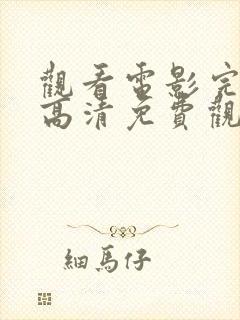 觀看電影完
高清免費觀
細馬仔